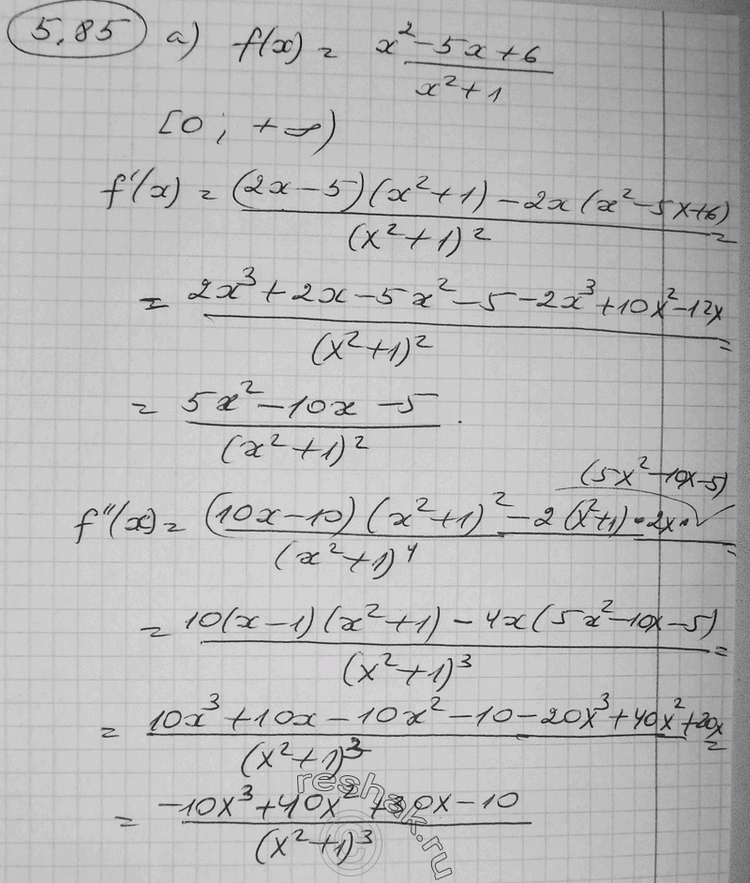 5.85 a) f(x) = (x² - 5x + 6)/(x² + 1)
[0; +∞)
f'(x) = ((2x - 5)(x² + 1) - 2x(x² - 5x + 6))/(x² + 1)² =
= (2x³ + 2x - 5x² - 5 - 2x³ + 10x² - 12x)/(x² + 1)² =
= (5x² - 10x - 5)/(x² + 1)².
(5x² - 10x - 5)
f''(x) = ((10x - 10)(x² + 1)² - 2(x² + 1)·2x· ✓)/(x² + 1)⁴ =
= (10(x - 1)(x² + 1) - 4x(5x² - 10x - 5))/(x² + 1)³ =
= (10x³ + 10x - 10x² - 10 - 20x³ + 40x² + 20x)/(x² + 1)³ =
= (-10x³ + 40x² + 30x - 10)/(x² + 1)³
reshak.ru